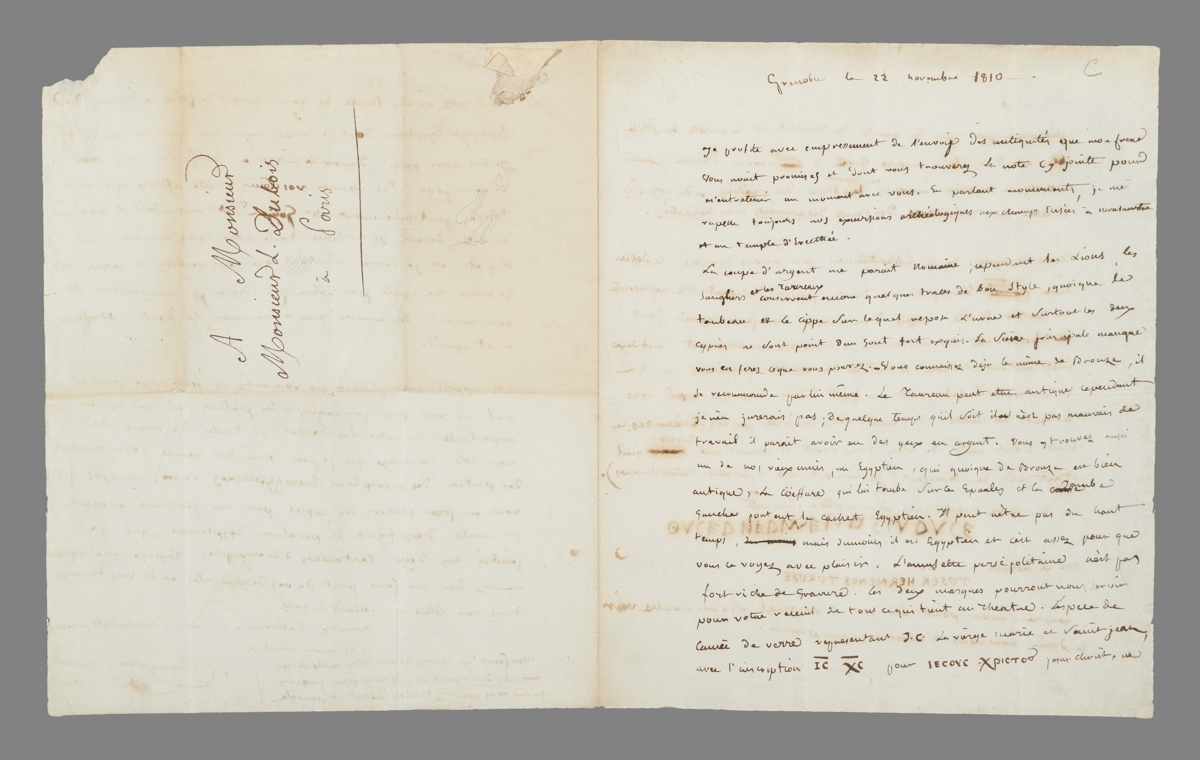 A Monsieur
Monsieur L. Dubois
à Paris
C
Grenoble le 22 novembre 1810
Je profite avec empressement de l'envoie des antiquités que mon frere
vous avait promises et dont vous trouverez la note cy jointe pour
m'entretenir un moment avec vous. En parlant monuments, je me
rapelle toujours nos excursions archéologiques aux champs Elisées, à
et au temple d'Erecthée.
La coupe d'argent me parait Romaine; cependant les Lions, les
Sangliers et les Taureaux conservent encore quelques traces de bon Style, quoique le
tombeau et le cippe sur lequel repose L'urne et surtout les deux
cyprès ne sont point d'un Gout fort exquis. La piece principale manque
vous en ferez ceque vous pourrez. Vous connaissez déja le mime de Bronze, il
se recommande par lui même. Le Taureau peut etre antique cependant
je n'en jurerais pas; de quelque temps quil soit il n'est pas mauvais de
travail il parait avoir eu des yeux en argent. Vous y trouvez aussi
un de nos vieux amis, un Egyptien, qui quoique de Bronze est bien
antique; La Coëffure qui lui tombe sur les Epaules et la Jambe
Gauche portent le cachet Egyptien. Il peut n'être pas du haut
temps, mais dumoins il est Egyptien et c'est assez pour que
vous le voyez avec plaisir. L'amulette persépolitaine n'est pas
fort riche de Gravure. Les deux masques pourront nous servir
pour votre recueil de tout cequi tient au Theatre. L'espece de
Camée de verre representant J.C. La vierge marie et Saint jean,
avec l'inscription IC XC pour IECOYC XPICTOC jesus christ, ne